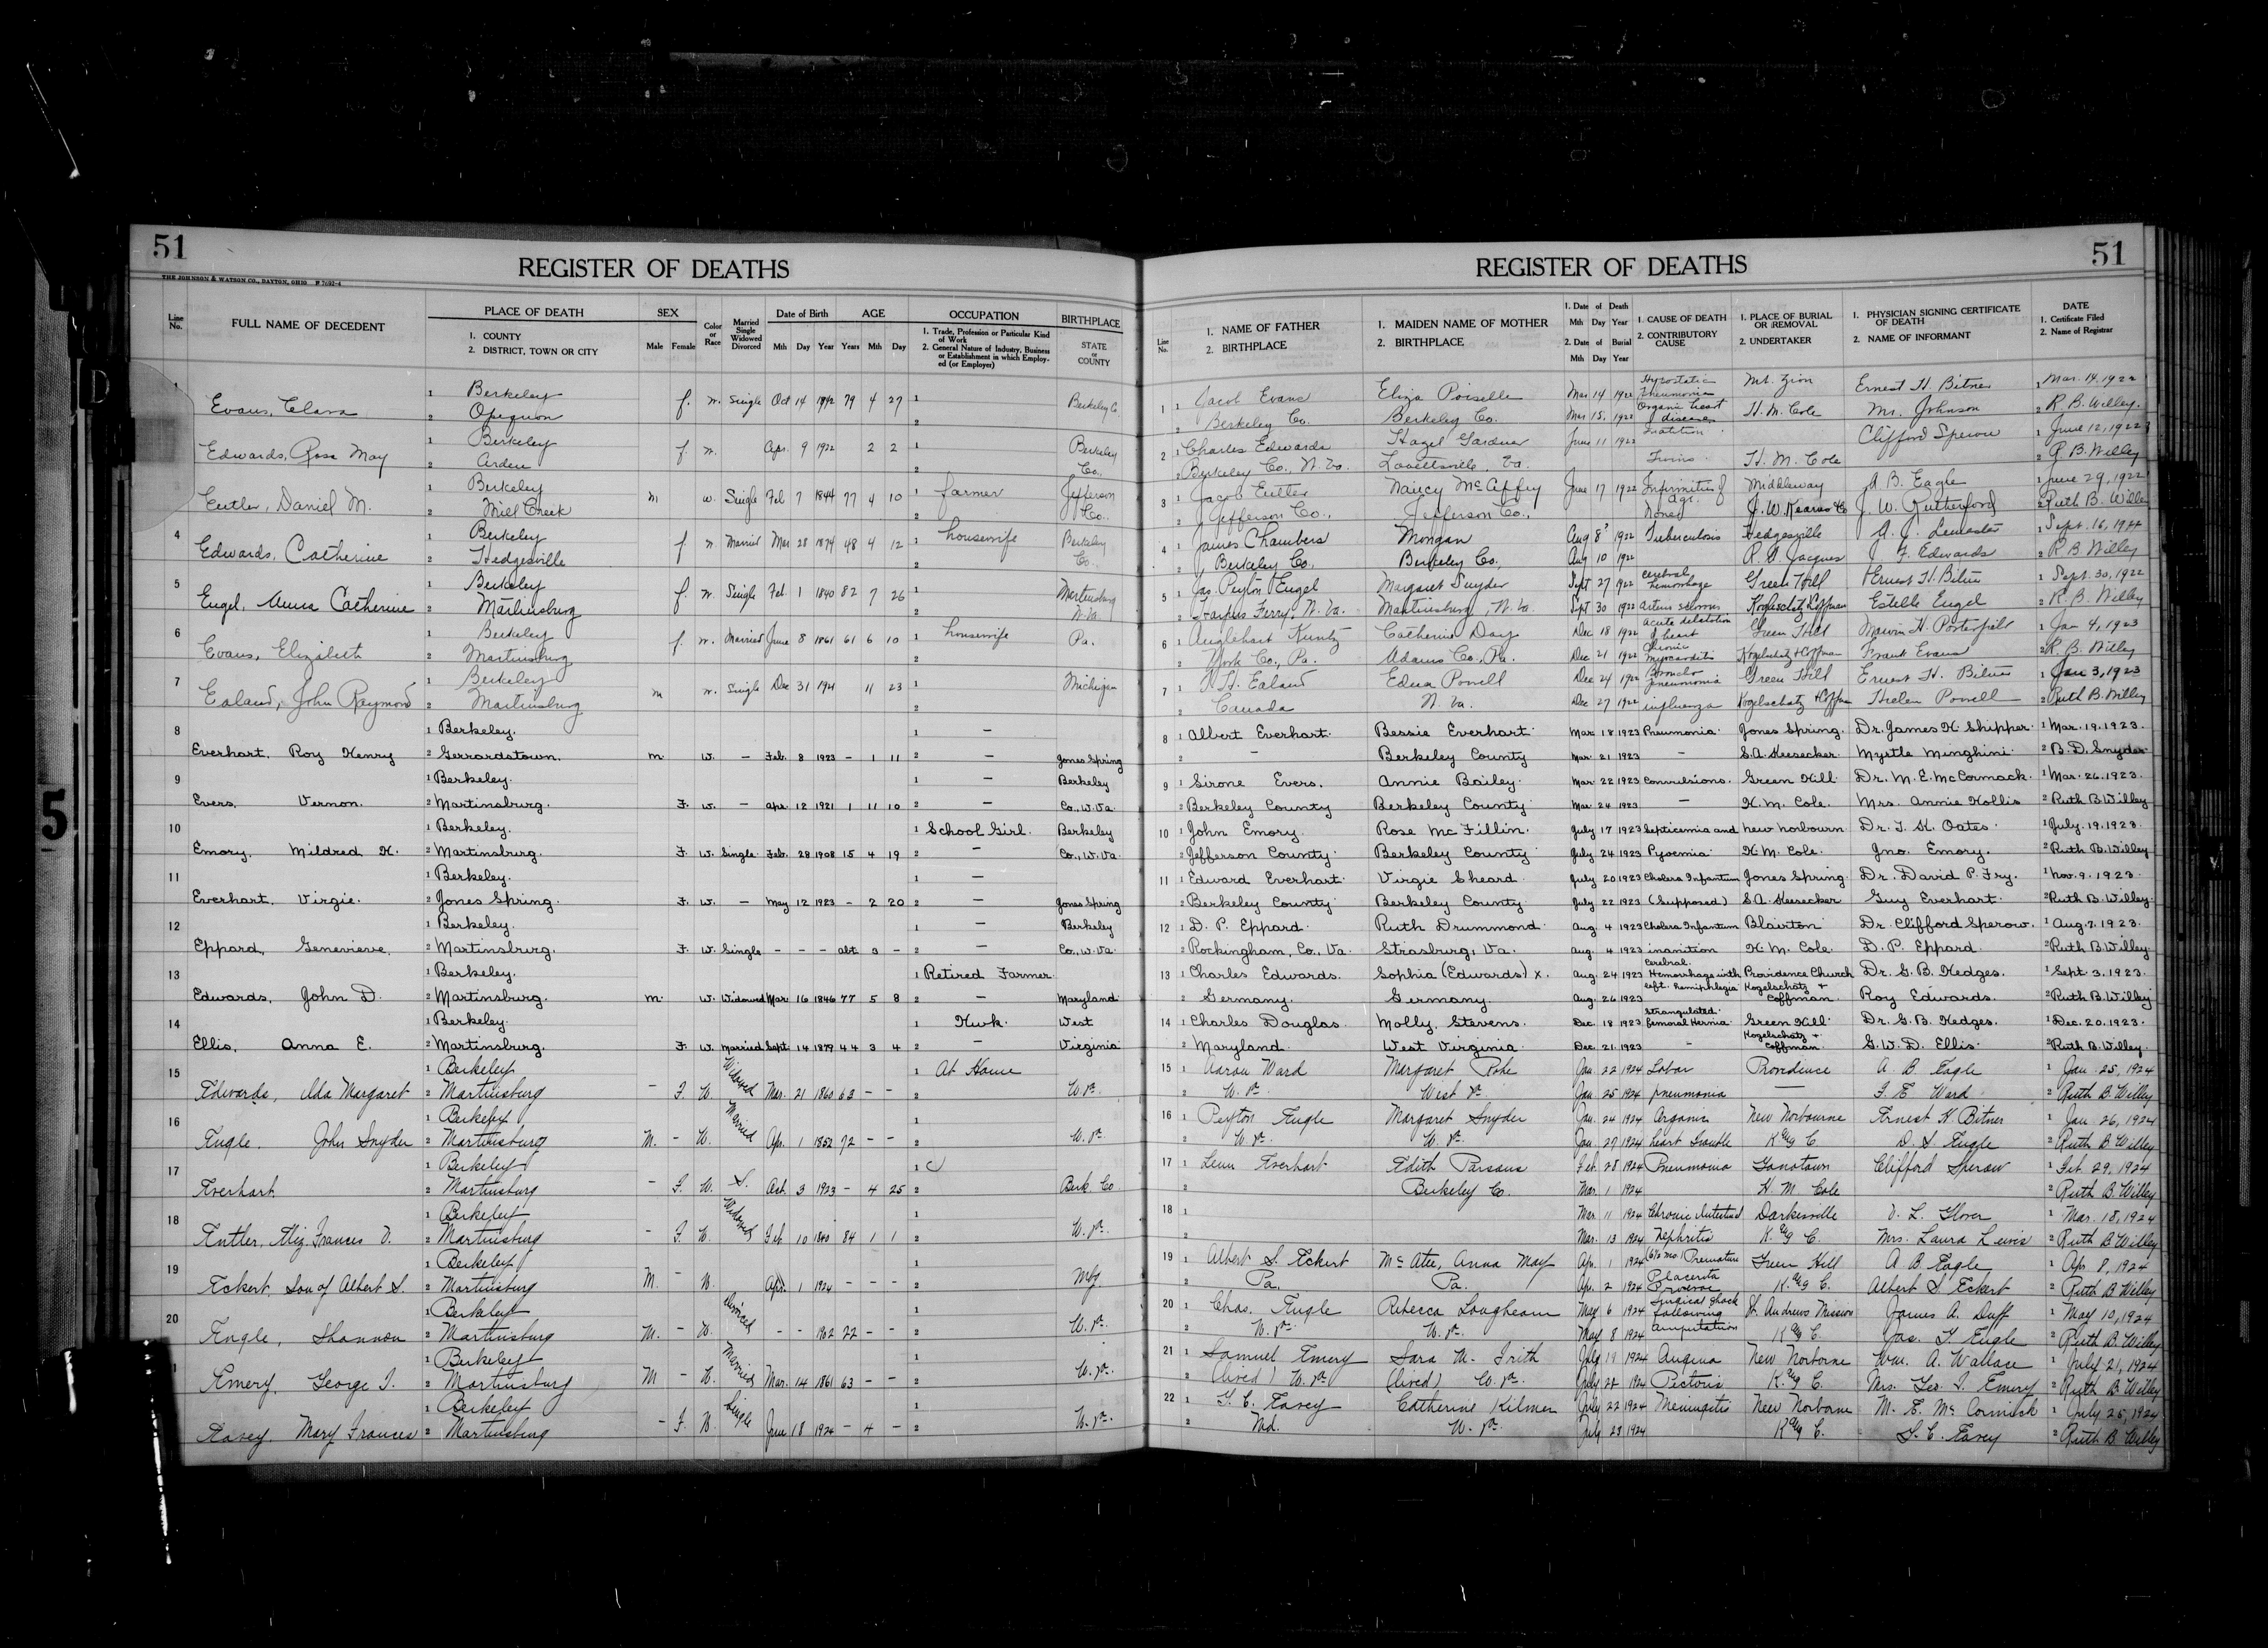 51
THE JOHNSON & WATSON CO., DAYTON, OHIO
REGISTER OF DEATHS
Line No.
FULL NAME OF DECEDENT
PLACE OF DEATH
1. COUNTY
2. DISTRICT, TOWN OR CITY
SEX
Male Female
Color or Race
Married Single Widowed Divorced
Date of Birth
Mth Day Year
AGE
Years Mth Day
OCCUPATION
1. Trade, Profession or Particular Kind of Work
2. General Nature of Industry, Business or Establishment in which Employed (or Employer)
BIRTHPLACE
STATE or COUNTY
Evans, Clara 1 Berkeley 2 Opequon f. w. Single Oct 14 1842 79 4 27 1 2 Berkeley Co.
Edwards, Rosa May 1 Berkeley 2 Arden f. w. Apr. 9 1922 2 2 1 2 Berkeley Co.
Eutler, Daniel M. 1 Berkeley 2 Mill Creek m w. Single Feb 7 1844 77 4 10 1 farmer 2 Jefferson Co.
4 Edwards, Catherine 1 Berkeley 2 Hedgesville f w. Married Mar 28 1874 48 4 12 1 housewife 2 Berkeley Co.
5 Engel, Anna Catherine 1 Berkeley 2 Martinsburg f. w. Single Feb. 1 1840 82 7 26 1 2 Martinsburg W. Va.
6 Evans, Elizabeth 1 Berkeley 2 Martinsburg f. w. Married June 8 1861 61 6 10 1 housewife 2 Pa.
7 Ealand, John Raymond 1 Berkeley 2 Martinsburg m w. Single Dec 31 1921 11 23 1 2 Michigan
8 Everhart, Roy Henry 1 Berkeley. 2 Gerrardstown. m. W. – Feb. 8 1923 – 1 11 1 – 2 – Jones Spring
9 Evers, Vernon. 1 Berkeley. 2 Martinsburg. F. W. – Apr. 12 1921 1 11 10 1 – 2 – Berkeley Co., W. Va.
10 Emory, Mildred K. 1 Berkeley. 2 Martinsburg. F. W. Single Feb. 28 1908 15 4 19 1 School Girl. 2 – Berkeley Co., W. Va.
11 Everhart, Virgie. 1 Berkeley. 2 Jones Spring. F. W. – May 12 1923 – 2 20 1 – 2 – Jones Spring
12 Eppard, Genevieve. 1 Berkeley. 2 Martinsburg. F. W. Single – – – abt 3 – 1 – 2 – Berkeley Co., W. Va.
13 Edwards, John D. 1 Berkeley. 2 Martinsburg. m. W. Widowed Mar 16 1846 77 5 8 1 Retired Farmer. 2 – Maryland
14 Ellis, Anna E. 1 Berkeley. 2 Martinsburg. F. W. Married Sept 14 1879 44 3 4 1 Hwk. 2 – West Virginia
15 Edwards, Ida Margaret 1 Berkeley 2 Martinsburg – F. W. Widowed Mar. 21 1860 63 – – 1 At Home 2 W. Va.
16 Engle, John Snyder 1 Berkeley 2 Martinsburg M. – W. Married Apr. 1 1852 72 – – 1 2 W. Va.
17 Everhart 1 Berkeley 2 Martinsburg – F. W. S. Oct. 3 1923 – 4 25 1 2 Berk. Co
18 Eutler, Miz. Frances V. 1 Berkeley 2 Martinsburg – F. W. Widowed Feb. 10 1840 84 1 1 1 2 W. Va.
19 Eckert, Son of Albert S. 1 Berkeley 2 Martinsburg M. – W. Apr. 1 1924 – – – 1 2 Mbg
20 Engle, Shannon 1 Berkeley 2 Martinsburg M. – W. divorced – – 1902 22 – – 1 2 W. Va.
Emery, George T. 1 Berkeley 2 Martinsburg M – W. Married Mar. 14 1861 63 – – 1 2 W. Va.
Eavey, Mary Frances 1 Berkeley 2 Martinsburg – F. W. Single June 18 1924 – 4 – 1 2 W. Va.
51
REGISTER OF DEATHS
Line No.
1. NAME OF FATHER
2. BIRTHPLACE
1. MAIDEN NAME OF MOTHER
2. BIRTHPLACE
1. Date of Death
Mth Day Year
2. Date of Burial
Mth Day Year
1. CAUSE OF DEATH
2. CONTRIBUTORY CAUSE
1. PLACE OF BURIAL OR REMOVAL
2. UNDERTAKER
1. PHYSICIAN SIGNING CERTIFICATE OF DEATH
2. NAME OF INFORMANT
DATE
1. Certificate Filed
2. Name of Registrar
1 1 Jacob Evans Eliza Poiselle Mar 14 1922 Hypostatic Pneumonia Mt. Zion Ernest H. Bitner 1 Mar. 14, 1922
2 Berkeley Co. Berkeley Co. Mar 15. 1922 Organic heart disease H. M. Cole Mr. Johnson 2 R. B. Willey.
2 1 Charles Edwards Hazel Gardner June 11 1922 Inanition Clifford Sperow 1 June 12, 1922
2 Berkeley Co., W. Va. Lovettsville, Va. Twins. H. M. Cole 2 R. B. Willey
3 1 Jacob Eutler Nancy McAffey June 17 1922 Infirmities of age. Middleway A. B. Eagle 1 June 29, 1922
2 Jefferson Co., Jefferson Co., None J. W. Kearns & Co J. W. Rutherford 2 Ruth B. Willey
4 1 James Chambers Morgan Aug 8 1922 Tuberculosis Hedgesville A. J. Lemaster 1 Sept. 16, 1922
2 Berkeley Co., Berkeley Co., Aug 10 1922 J. F. Edwards 2 R. B. Willey
5 1 Jas. Peyton Engel Margaret Snyder Sept 27 1922 cerebral hemorrhage Green Hill Ernest H. Bitner 1 Sept. 30, 1922
2 Harpers Ferry, W. Va. Martinsburg, W. Va. Sept 30 1922 Kogelschatz & Coffman Estelle Engel 2 R. B. Willey
6 1 Anglehart Kuntz Catherine Day Dec 18 1922 acute dilatation of heart Green Hill Marvin H. Porterfield 1 Jan 4, 1923
2 York Co., Pa. Adams Co., Pa. Dec 21 1922 chronic myocarditis Kogelschatz & Coffman Frank Evans 2 R. B. Willey
7 1 Ealand Edna Powell Dec 24 1922 Broncho pneumonia Green Hill Ernest H. Bitner 1 Jan 3, 1923
2 Canada W. Va. Dec 27 1922 influenza Kogelschatz & Coffman Helen Powell 2 Ruth B. Willey
8 1 Albert Everhart. Bessie Everhart. Mar. 18 1923 Pneumonia. Jones Spring. Dr. James K. Shipper. 1 Mar. 19, 1923.
2 – Berkeley County Mar. 21 1923 – S. A. Keesecker. Myrtle Minghini. 2 B. D. Snyder
9 1 Sirone Evers. Annie Bailey. Mar. 22 1923 Convulsions. Green Hill. Dr. M. E. McCormack. 1 Mar. 26, 1923.
2 Berkeley County Berkeley County Mar 24 1923 – H. M. Cole. Mrs. Annie Hollis 2 Ruth B. Willey
10 1 John Emory. Rose McFillin. July 17 1923 Septicemia and New Norbourn. Dr. T. K. Oates. 1 July. 19, 1923.
2 Jefferson County. Berkeley County July 24 1923 Pyaemia. H. M. Cole. Jno. Emory. 2 Ruth B. Willey
11 1 Edward Everhart. Virgie Sheard. July 20 1923 Cholera Infantum Jones Spring. Dr. David P. Fry. 1 Nov. 9. 1923.
2 Berkeley County Berkeley County. July 22 1923 (Supposed) S. A. Keesecker Guy Everhart. 2 Ruth B. Willey.
12 1 D. P. Eppard. Ruth Drummond. Aug. 4 1923 Cholera Infantum Blairton Dr. Clifford Sperow. 1 Aug. 7. 1923.
2 Rockingham, Co., Va. Strasburg, Va. Aug. 4 1923 inanition H. M. Cole. D. P. Eppard. 2 Ruth B. Willey.
13 1 Charles Edwards. Sophia (Edwards) x. Aug. 24 1923 Cerebral Hemorrhage with left Hemiphlegia Providence Church Dr. G. B. Hedges. 1 Sept. 3. 1923.
2 Germany. Germany. Aug. 26 1923 Kogelschatz + Coffman. Roy Edwards. 2 Ruth B. Willey
14 1 Charles Douglas. Molly Stevens. Dec. 18 1923 Strangulated femoral Hernia. Green Hill. Dr. G. B. Hedges. 1 Dec. 20. 1923.
2 Maryland. West Virginia. Dec. 21. 1923 – Kogelschatz + Coffman. G. W. D. Ellis. 2 Ruth B. Willey.
15 1 Aaron Ward Margaret Jan. 22 1924 Lobar Providence A. B. Eagle 1 Jan. 25, 1924
2 W. Va. West Va Jan. 25 1924 pneumonia — F. E. Ward 2 Ruth B. Willey
16 1 Peyton Engle Margaret Snyder Jan. 24 1924 Organic New Norbourne Ernest H Bitner 1 Jan 26, 1924
2 W. Va. W. Va. Jan. 27 1924 heart trouble K & C D. S. Engle 2 Ruth B Willey
17 1 Lenn Everhart Edith Parsons Feb. 28 1924 Pneumonia Ganotown Clifford Sperow 1 Feb. 29, 1924
2 Berkeley Co. Mar. 1 1924 H. M. Cole 2 Ruth B. Willey
18 1 Mar. 11 1924 Chronic Interstitial Darkesville V. L. Glover 1 Mar. 18, 1924
2 Mar. 13 1924 Nephritis K. & C. Mrs. Laura Lewis 2 Ruth B Willey
19 1 Albert S. Eckert McAtee, Anna May Apr. 1 1924 (6½ mo.) Premature Green Hill A B. Eagle 1 Apr. 8, 1924
2 Pa. Pa. Apr. 2 1924 Placenta K. & C. Albert S Eckert 2 Ruth B Willey
20 1 Chas. Engle Rebecca Lougheam May 6 1924 Surgical shock following St. Andrews Mission James A. Duff 1 May 10, 1924
2 W. Va. W. Va. May 8 1924 amputation K & C. Jas. Y. Engle 2 Ruth B. Willey
21 1 Samuel Emery Sara M. Frith July 19 1924 Angina New Norborne Wm. A. Wallace 1 July 21, 1924
2 (lived) W. Va (lived) W. Va. July 22 1924 Pectoris K. & C. Mrs. Geo. T. Emery 2 Ruth B Willey
22 1 Eavey Catherine Kilmer July 22 1924 Meningitis New Norborne M. E. McCormick 1 July 25, 1924
2 Md. W. Va. July 23 1924 K & C. Eavey 2 Ruth B Willey
5
D